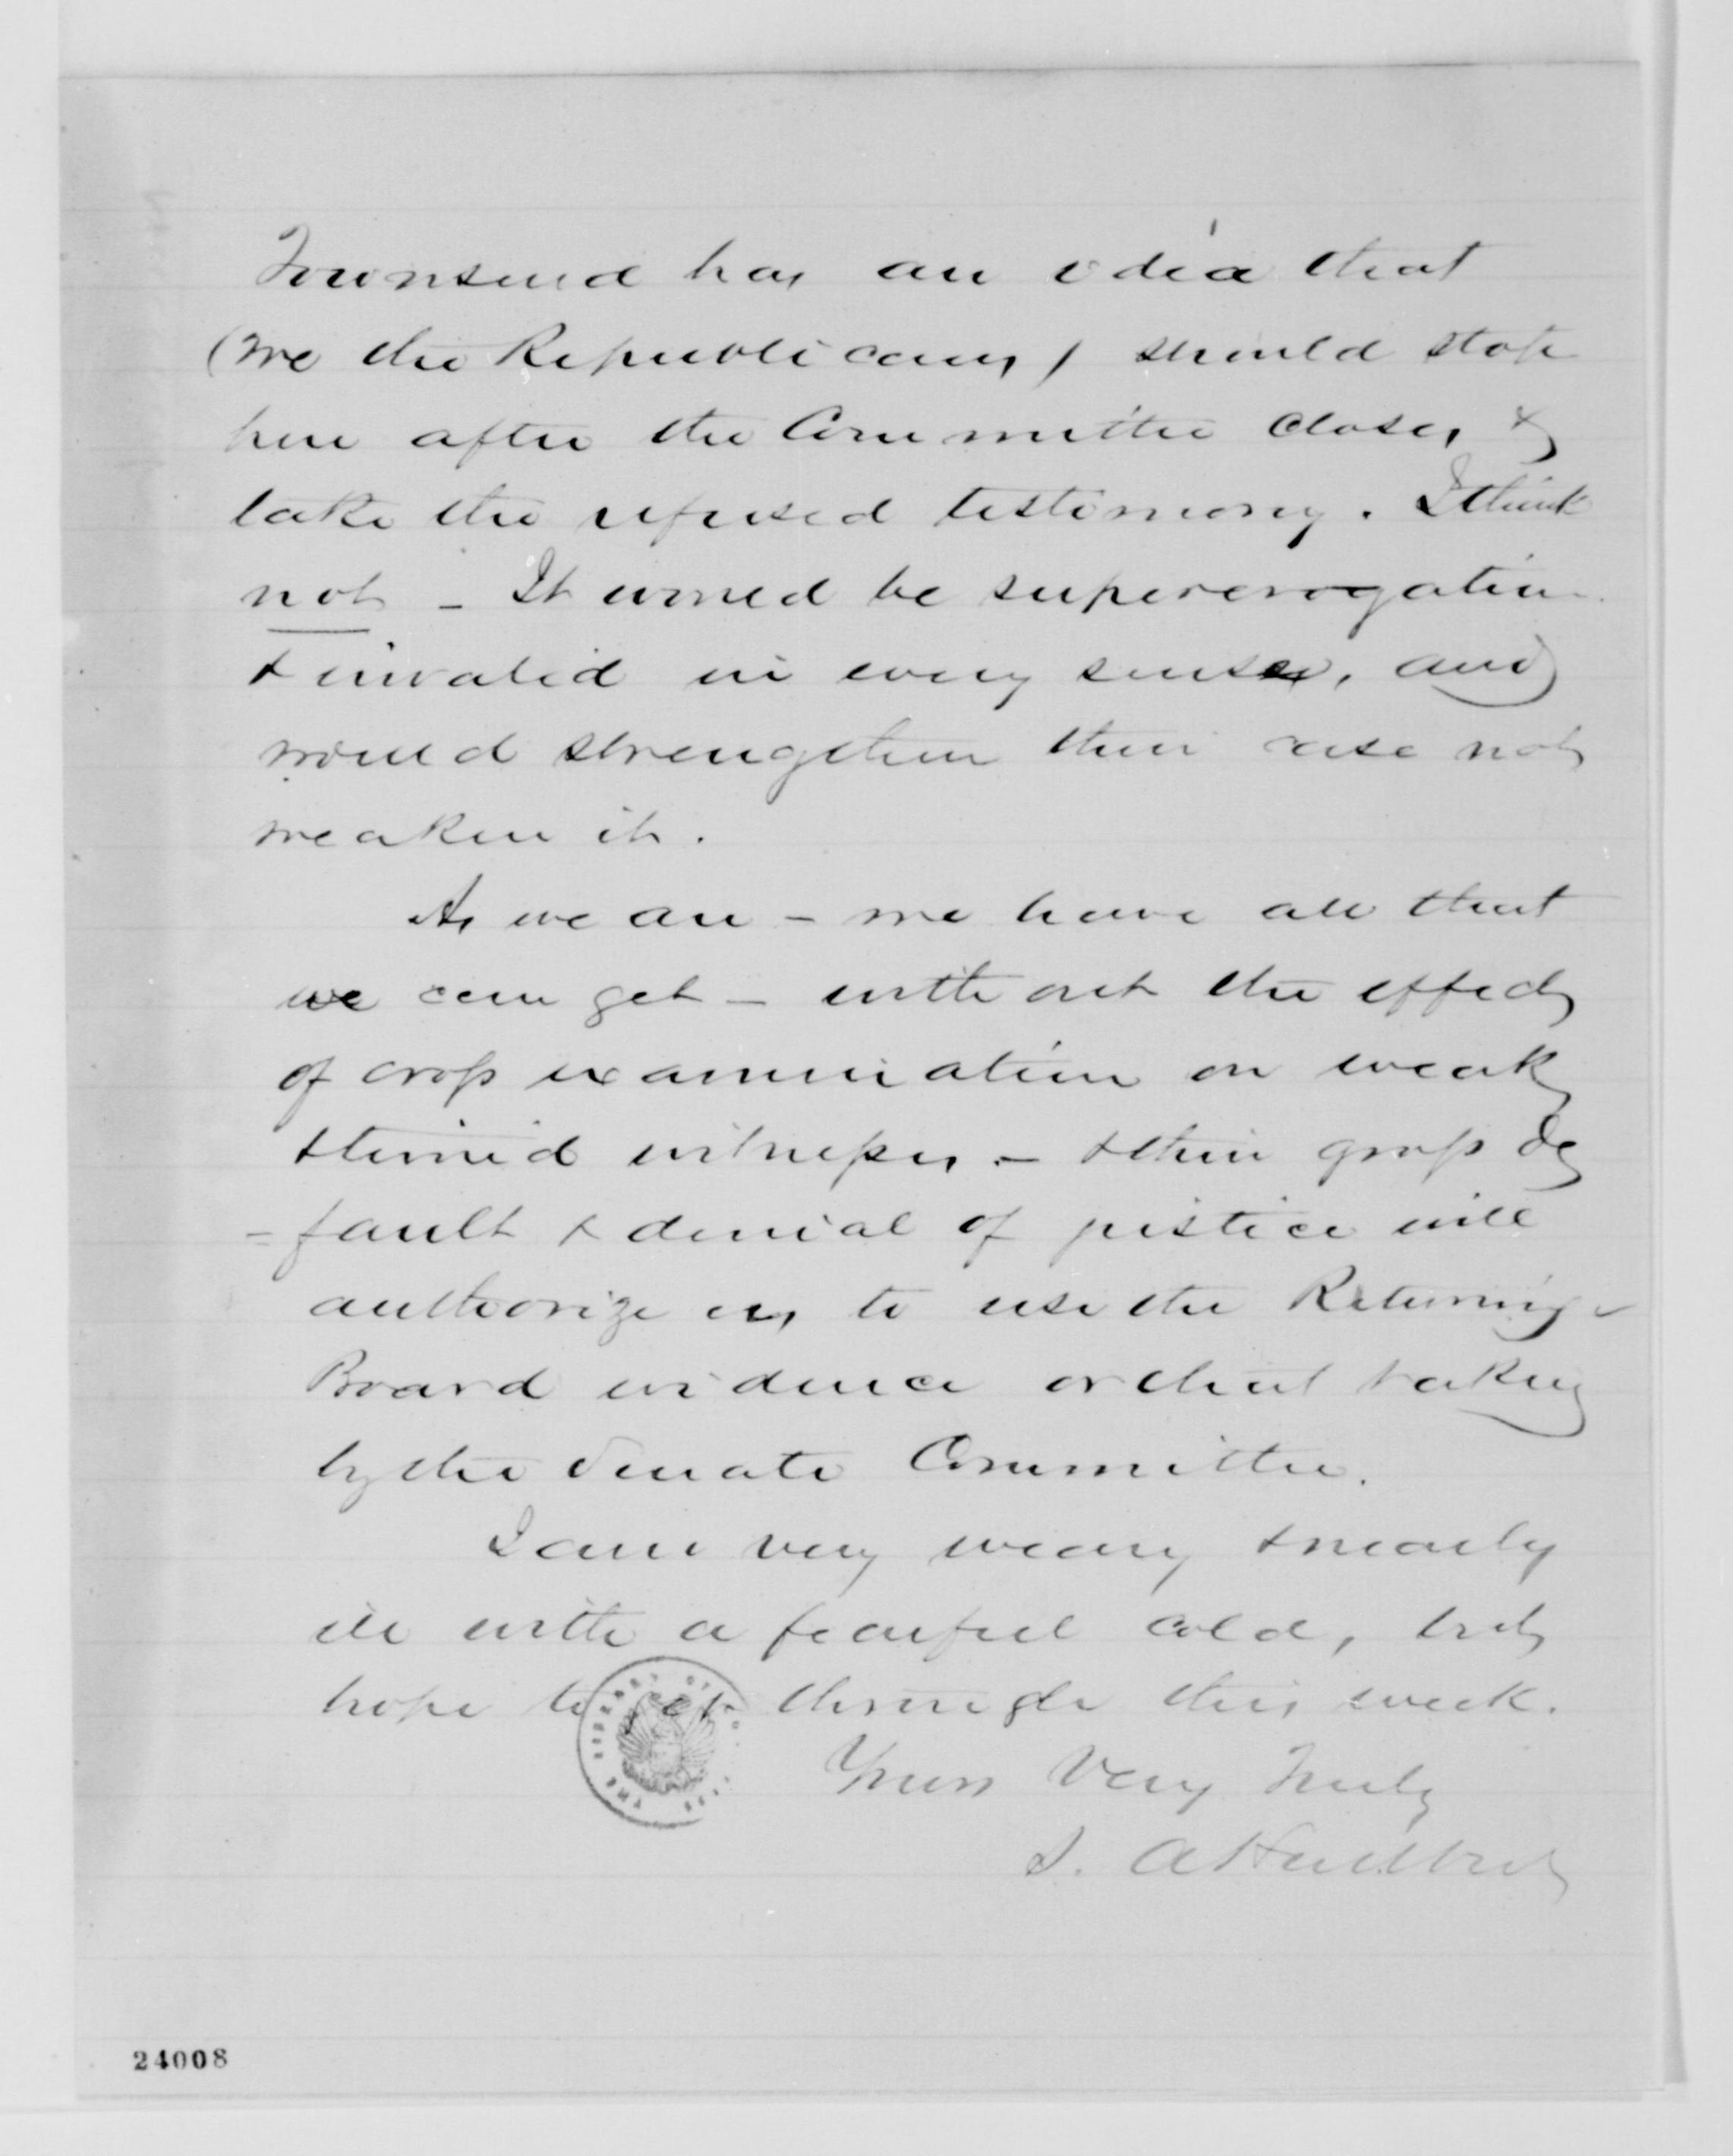 Townsend has an idea that
(we the Republicans) should stop
here after the Committee closes &
take the refused testimony. I think
not - It would be supererogation
& invalid in every sense, and
would strengthen their case not
weaken it.
As we are - we have all that
we can get - without the effect
of cross examination on weak
& timid witnesses - & their gross de
=fault & denial of justice will
authorize us to use the Returning
Board evidence or that taken
by the Senate Committee.
I am very weary & nearly
ill with a fearful cold, but
hope to get through this week.
Yours Very Truly
S. A Hurlbut
24008